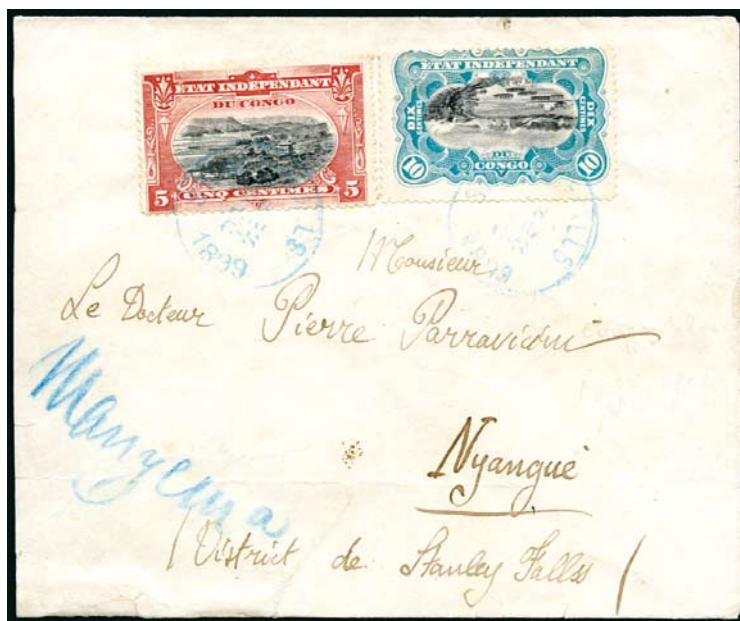 ETAT INDEPENDANT
DU CONGO
5 CINQ CENTIMES 5
ETAT INDEPENDANT
DIX CENTIMES
DIX CENTIMES
10 DU CONGO 10
1899
LLS
1899
Monsieur
Le Docteur Pierre Parravicini
Manyema
Nyangué
/District de Stanley Falls/